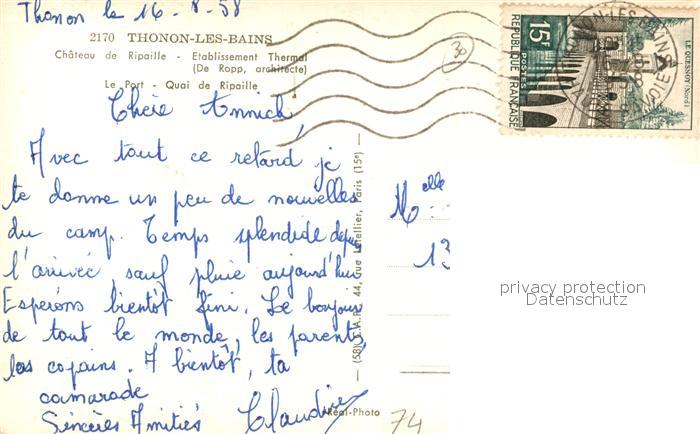 Thonon le 16-8-58
2170 THONON-LES-BAINS
Château de Ripaille - Etablissement Thermal
(De Ropp, architecte)
Le Port - Quai de Ripaille
30
15F
POSTES
REPUBLIQUE FRANÇAISE
LE QUESNOY (Nord)
THONON-LES-BAINS
Chère Annick
Avec tout ce retard je
te donne un peu de nouvelles
du camp. Temps splendide depuis
l'arrivée sauf pluie aujourd'hui
Espérons bientôt fini. Le bonjour
de tout le monde, les parents,
les copains. A bientôt, ta
camarade
Sincères Amitiés Claudine
(58) C.A.P. 44, rue Letellier, Paris (15e)
Melle
13
privacy protection
Datenschutz
Réal-Photo
74